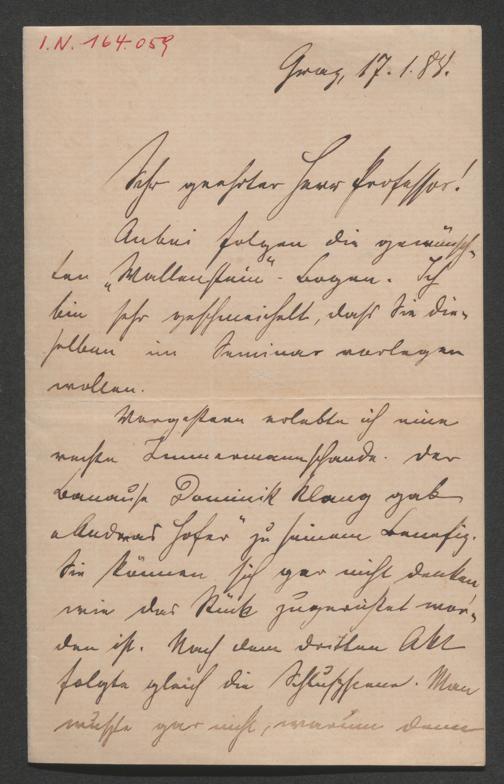 I.N. 164.059
Graz, 17.1.84.
Sehr geehrter Herr Professor!
Anbei folgen die gewünsch-
ten „Wallenstein"-Bogen. Ich
bin sehr geschmeichelt, dass Sie die-
selben im Seminar vorlegen
wollen.
Vorgestern erlebte ich eine
rechte Immermannschande. Der
Banause Dominik Klang gab
„Andreas Hofer" zu seinem Benefiz.
Sie können sich gar nicht denken
wie das Stück zugerichtet wor-
den ist. Nach dem dritten Akt
folgte gleich die Schlußscene. Man
wußte gar nicht, warum denn